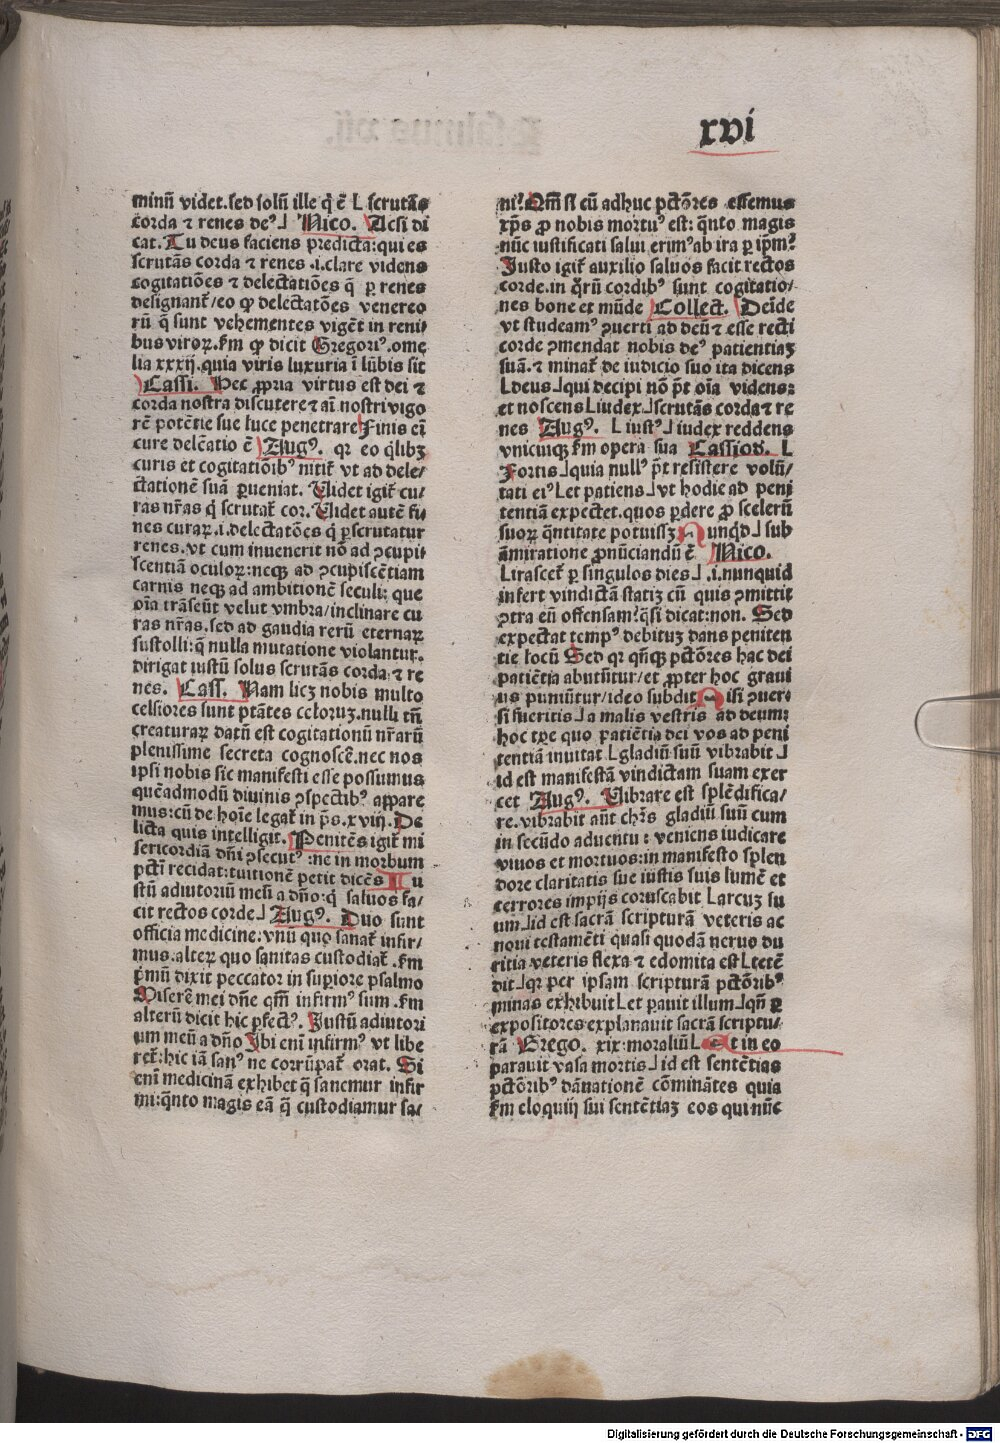 xvi
minū videt.sed solū ille q̄ ē L scrutās
corda ⁊ renes deꝰ⅃ Nico. Acsi di
cat. Tu deus faciens predicta:qui es
scrutās corda ⁊ renes .i.clare videns
cogitatiōes ⁊ delectatiōes q̄ ꝑ renes
designant᷑/eo ꝙ delectatōes venereo
rū q̄ sunt vehementes vigēt in reni⸗
bus viroꝝ.ẜm ꝙ dicit Gregoriꝰ.ome
lia xxxij.quia viris luxuria ī lūbis sit
Cassi. Hec ꝓpria virtus est dei ⁊
corda nostra discutere ⁊ aī nostri vigo
rē potētie sue luce penetrare Finis eī
cure delēatio ē Augꝰ. qꝛ eo q̄libꝫ
curis et cogitatiōibꝰ nitit᷑ vt ad dele/
ctationē suā ꝑueniat. Videt igit᷑ cu/
ras nr̄as q̄ scrutat᷑ cor. Videt autē fi⸗
nes curaꝝ.i.delectatōes q̄ ꝑscrutatur
renes.vt cum inuenerit nō ad ꝯcupi⸗
scentiā oculoꝝ:neqꝫ ad ꝯcupiscētiam
carnis neqꝫ ad ambitionē seculi: que
oīa trāseūt velut vmbra/inclinare cu
ras nr̄as.sed ad gaudia rerū eternaꝝ
sustolli:q̄ nulla mutatione violantur.
dirigat iustū solus scrutās corda ⁊ re
nes. Cass. Nam licꝫ nobis multo
celsiores sunt ptātes celoruꝫ.nulli tn̄
creaturaꝝ datū est cogitationū nr̄arū
plenissime secreta cognoscē.nec nos
ipsi nobis sic manifesti esse possumus
quēadmodū diuinis ꝯspectibꝰ appare
mus:cū de hoīe legat᷑ in ps.xviij.De
licta quis intelligit. Penitēs igit᷑ mi
sericordiā dn̄i ꝯsecutꝰ:ne in morbum
pctī recidat:tuitionē petit dicēs Iu
stū adiutoriū meū a dn̄o:q̄ saluos fa/
cit rectos corde⅃ Augꝰ. Duo sunt
officia medicine:vnū quo sanat᷑ infir/
mus.alteꝝ quo sanitas custodiat᷑.ẜm
pͥmū dixit peccator in suꝑiore psalmo
Miserē mei dn̄e qm̄ infirmꝰ sum.ẜm
alterū dicit hic ꝑfectꝰ. Justū adiutori
um meū a dn̄o Ibi enī infirmꝰ vt libe
ret᷑:hic iā sanꝰ ne corrūpat᷑ orat. Si
enī medicinā exhibet q̄ sanemur infir
mi:q̄nto magis eā q̄ custodiamur sa/
ni? Qm̄ si cū adhuc pctōres essemus
xp̄s ꝓ nobis mortuꝰ est: q̄nto magis
nūc iustificati salui erimꝰ ab ira ꝑ ip̄m?
Justo igit᷑ auxilio saluos facit rectos
corde.in q̄rū cordibꝰ sunt cogitatio/
nes bone et mūde Collect. Deīde
vt studeamꝰ ꝯuerti ad deū ⁊ esse recti
corde ꝯmendat nobis deꝰ patientiaꝫ
suā.⁊ minat᷑ de iudicio suo ita dicens
Ldeus⅃qui decipi nō pt̄ oīa videns:
et noscens Liudex⅃scrutās corda ⁊ re
nes Augꝰ. L iustꝰ⅃ iudex reddens
vnicuiqꝫ ẜm opera sua Cassiod. L
Fortis⅃quia nullꝰ pt̄ resistere volū/
tati eiꝰ Let patiens⅃vt hodie ad peni
tentiā expectet.quos ꝑdere ꝓ scelerū
suoꝝ q̄ntitate potuissꝫ Nunqͥd⅃ sub
āmiratione ꝓnūciandū ē Nico.
Lirascet᷑ ꝑ singulos dies⅃ .i.nunquid
infert vindictā statiꝫ cū quis ꝯmittit
ꝯtra eū offensam?q̄si dicat:non. Sed
expectat tempꝰ debituꝫ dans peniten
tie locū Sed qꝛ qn̄qꝫ pctōres hac dei
patiētia abutūtur/et ꝓpter hoc graui
us puniūtur/ideo subdit Nisi ꝯuer⸗
si fueritis⅃a malis vestris ad deum:
hoc tp̄e quo patiētia dei vos ad peni
tentiā inuitat Lgladiū suū vibrabit⅃
id est manifestā vindictam suam exer
cet Augꝰ. Vibrare est splēdifica/
re.vibrabit aūt chr̄s gladiū suū cum
in secūdo aduentu : veniens iudicare
viuos et mortuos:in manifesto splen
dore claritatis sue iustis suis lumē et
terrores impijs coruscabit Larcuꝫ su
um⅃id est sacrā scripturā veteris ac
noui testamēti quasi quodā neruo du
ritia veteris flexa ⁊ edomita est Ltetē
dit⅃qꝛ per ipsam scripturā pctōribꝰ
minas exhibuit Let ꝑauit illum⅃qn̄ ꝑ
expositores explanauit sacrā scriptu/
rā Grego. xix.moraliū L Et in eo
parauit vasa mortis⅃id est sentētias
pctōribꝰ dānationē cōminātes quia
ẜm eloquij sui sentētiaꝫ eos qui nūc
Digitalisierung gefördert durch die Deutsche Forschungsgemeinschaft - DFG